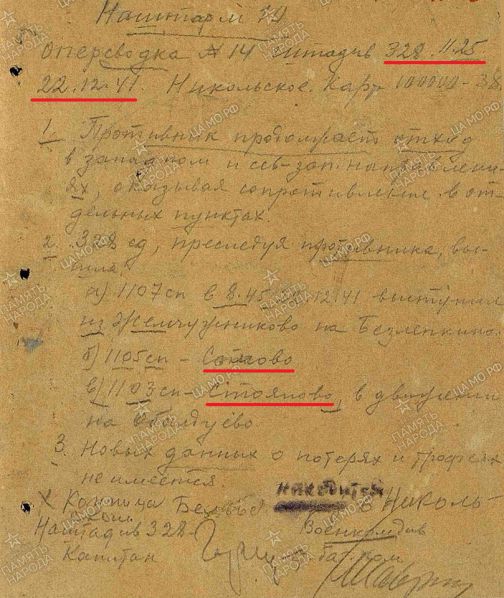 Наштарм 10
Оперсводка № 14 Штадив 328. 11.25
22.12.41. Никольское. Карт 100000-38
1. Противник продолжает отход
в западном и сев-зап. направлени-
ях, оказывая сопротивление в от-
дельных пунктах.
2. 328 сд, преследуя противника, вы-
шла
а) 1107 сп в 8.45 12.41 выступил
из Жемчужниково на Безлепкино.
б) 1105 сп -
в) 1103 сп - Стояново, в движении
на Оболдуево
3. Новых данных о потерях и трофеях
не имеется
находится Николь-
Наштадив 328 - Военкомдив
Капитан бат. ком